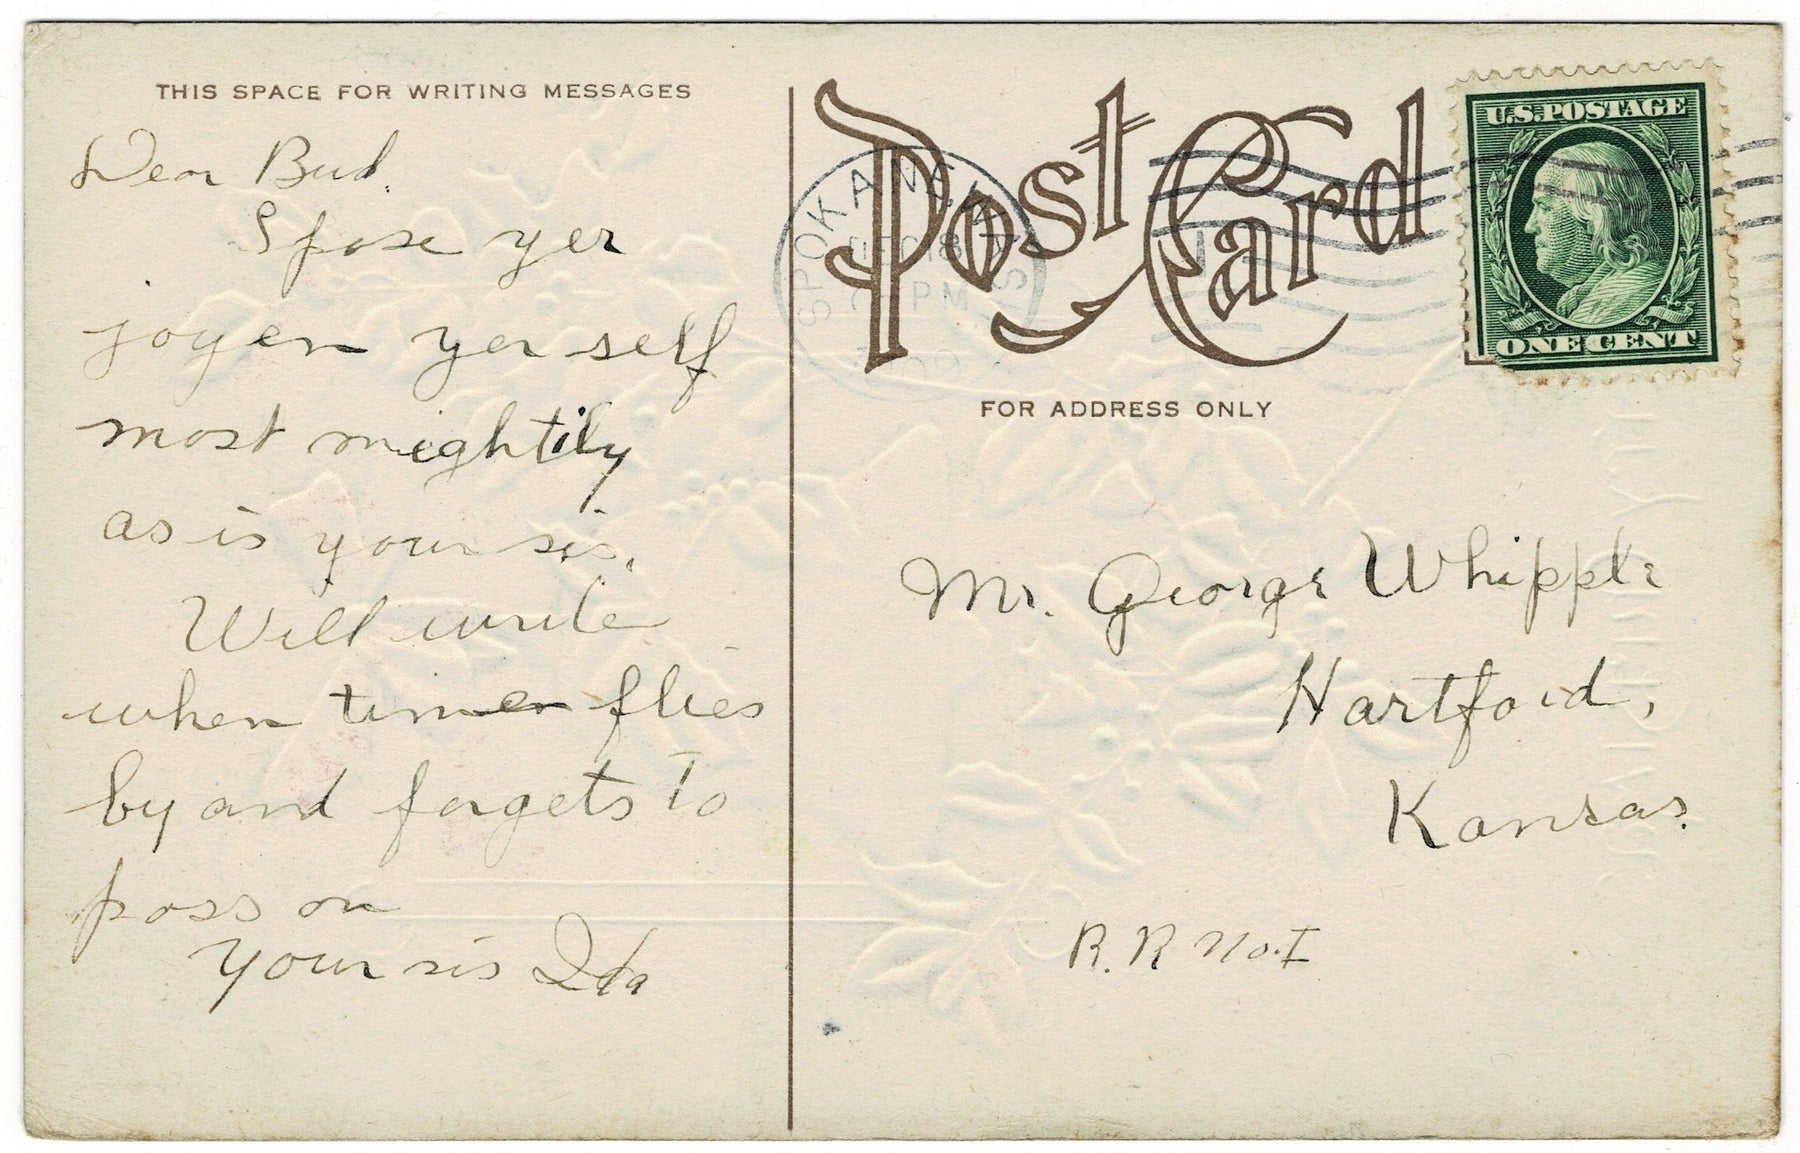 THIS SPACE FOR WRITING MESSAGES
Dear Bud.
Spose yer
joyen yer self
most mightily
as is your sis.
Will write
when timen flies
by and forgets to
pass on
Your sis Ida
Post Card
SPOKANE, WASH
DEC 18
PM
09
U.S. POSTAGE
ONE CENT
FOR ADDRESS ONLY
Mr. George Whipple
Hartford,
Kansas.
R.R No. I